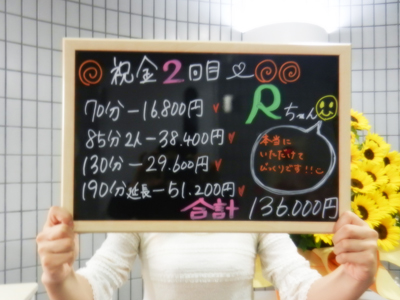 祝金2回目
70分ー16.800円
85分2人ー38.400円
130分ー29.600円
190分延長ー51.200円
合計 136.000円
Rちゃん
本当に
いただけて
びっくりです!!